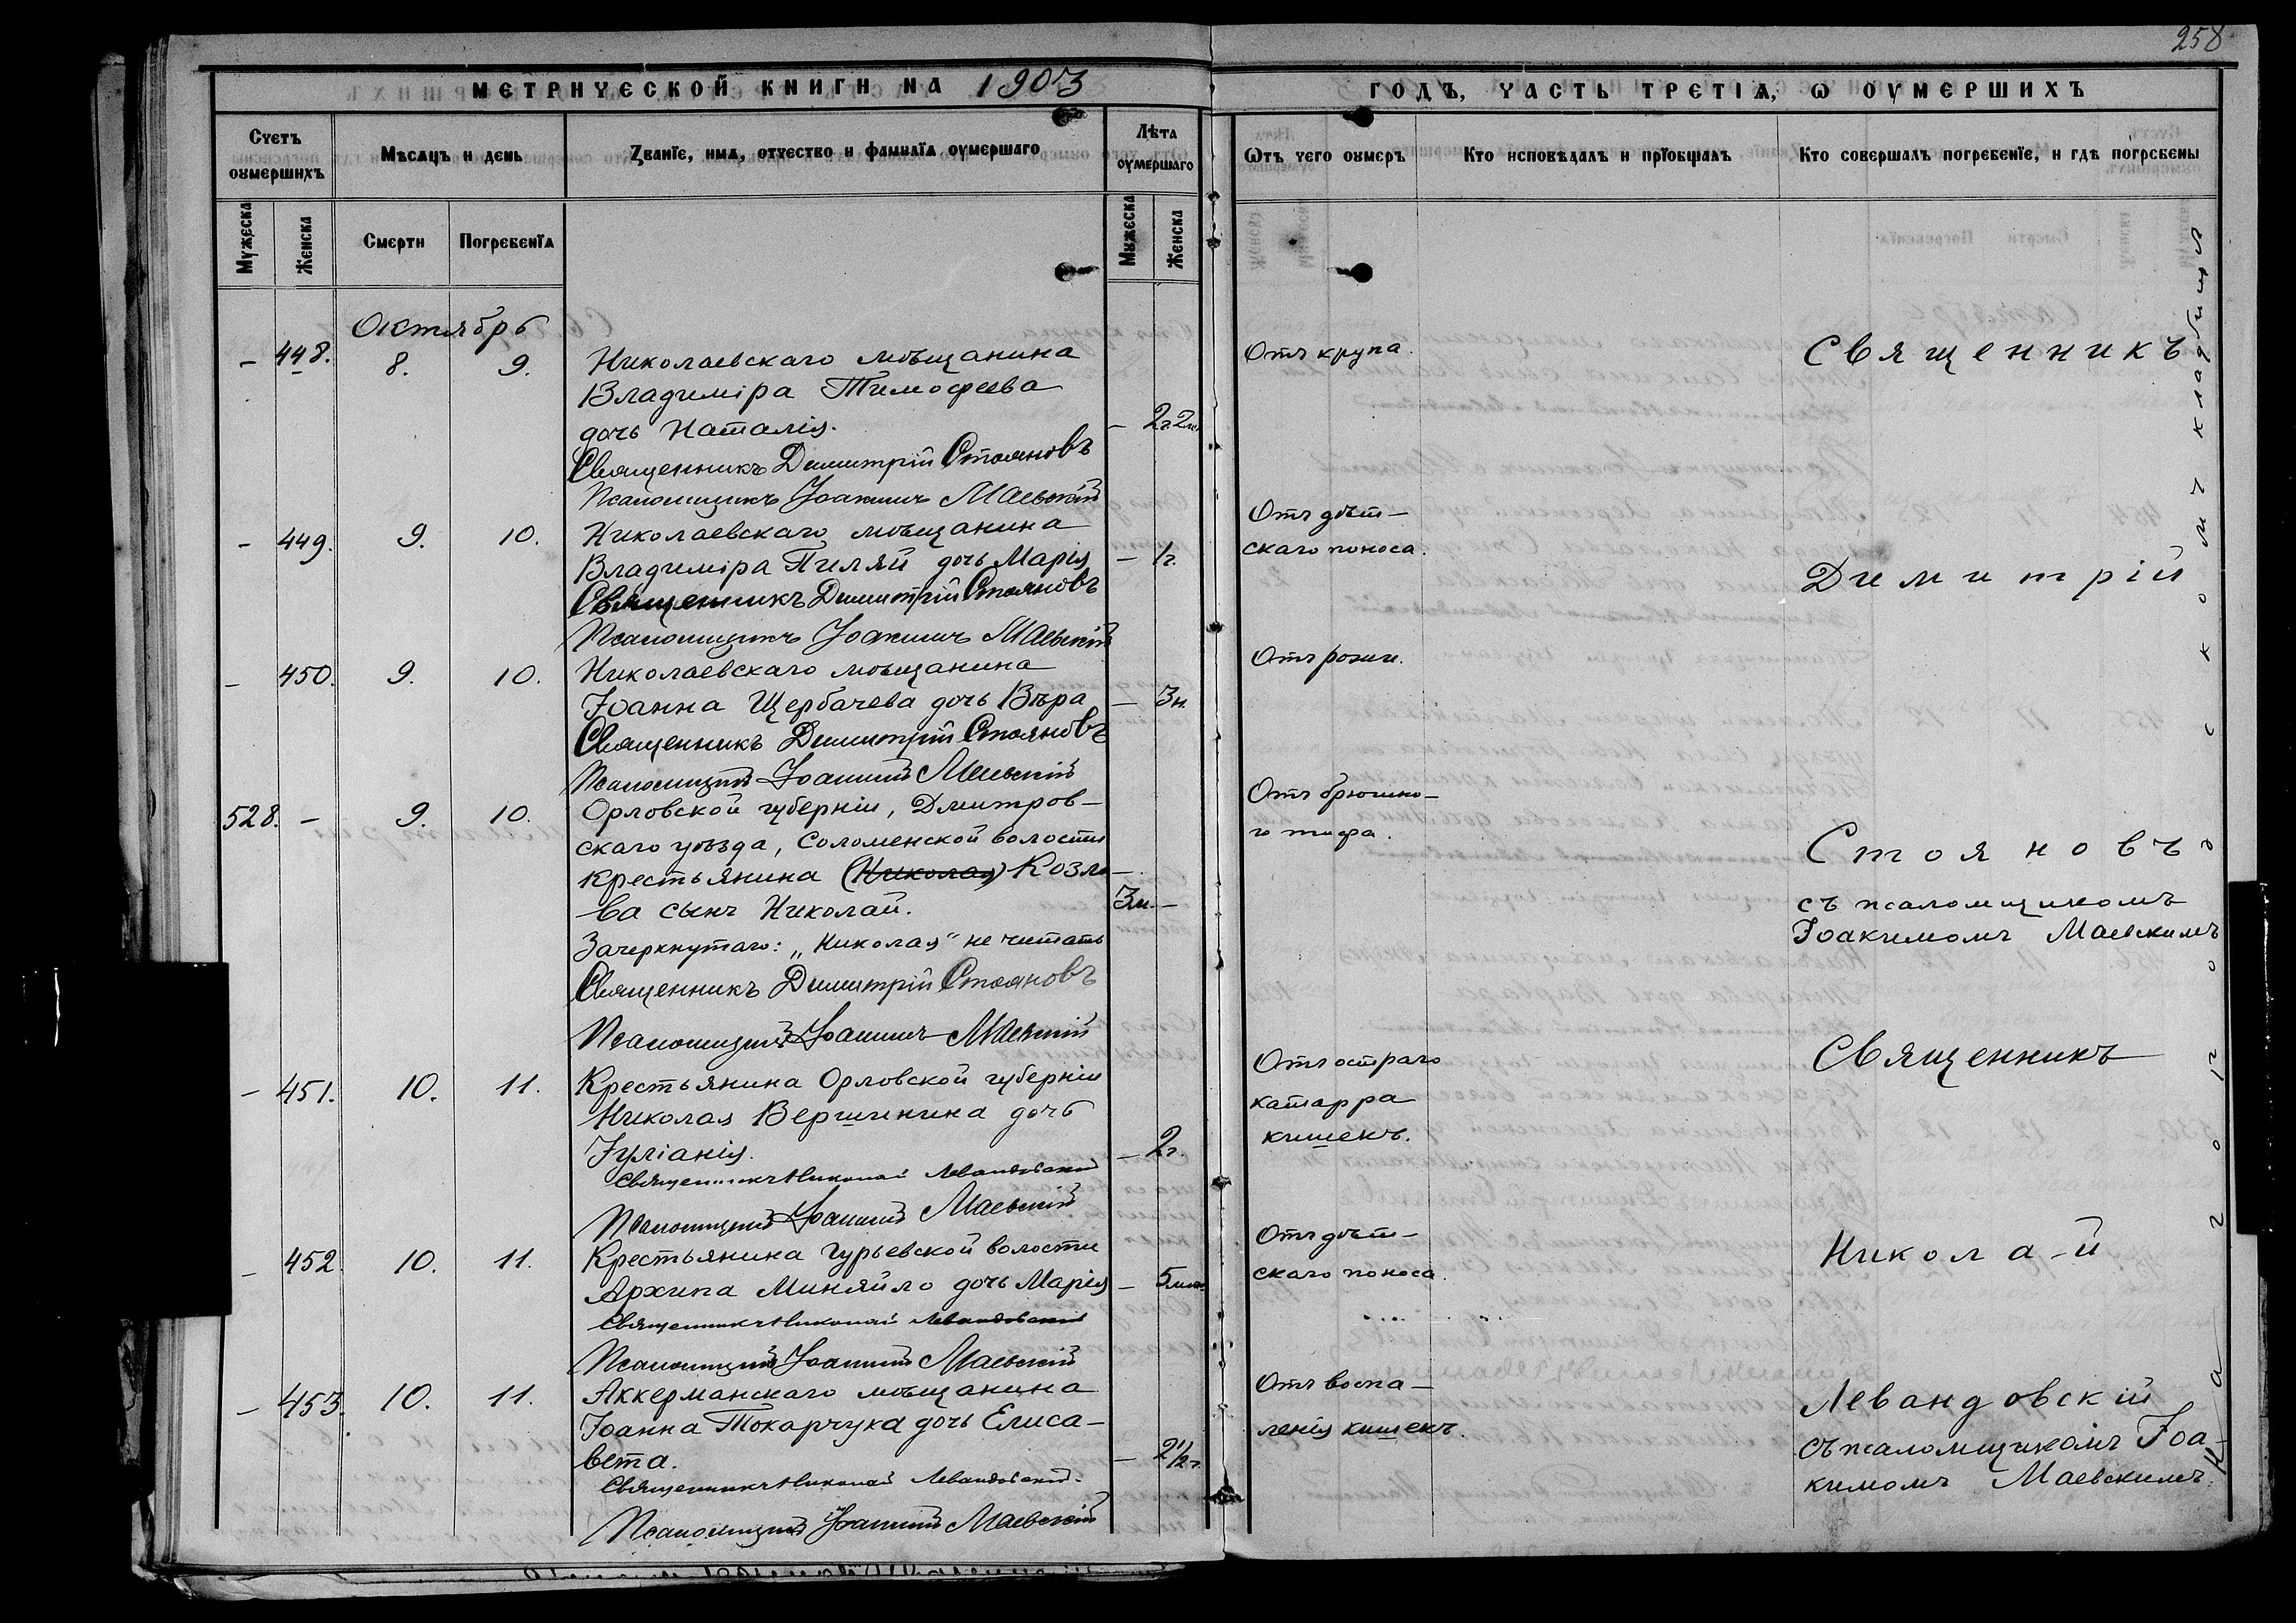 258
МЕТРИЧЕСКОЙ КНИГИ НА 1903
ГОДЪ, ЧАСТЬ ТРЕТІѦ, Ѡ ОУМЕРШИХЪ
Счетъ оумершихъ
Мѣсѧцъ и день
Званїе, имѧ, отчество и фамилїѧ оумершаго
Лѣта оумершаго
Ѿтъ чего оумеръ
Кто исповѣдалъ и прїобщалъ
Кто совершалъ погребенїе, и гдѣ погребены
Мужеска
Женска
Смерти
Погребенїѧ
Мужеска
Женска
Октябрь
– 448. 8. 9. Николаевскаго мѣщанина
Владиміра Тимофеева
дочь Наталія. – 2г. 2м.
Отъ крупа.
Священникъ Димитрій Стояновъ
Псаломщикъ Іоакимъ Маевскій
– 449. 9. 10. Николаевскаго мѣщанина
Владиміра Пиляй дочь Марія – 1г.
Отъ дѣт–
скаго поноса.
Священникъ Димитрій Стояновъ
Псаломщикъ Іоакимъ Маевскій
– 450. 9. 10. Николаевскаго мѣщанина
Іоанна Щербачева дочь Вѣра – 3н.
Отъ рожи.
Священникъ Димитрій Стояновъ
Псаломщикъ Іоакимъ Маевскій
528. – 9. 10. Орловской губерніи, Дмитров–
скаго уѣзда, Соломенской волости
крестьянина (Николая) Козло–
ва сынъ Николай. 3м. –
Отъ брюшно–
го тифа.
Зачеркнутаго: „Николая" не читать
Священникъ Димитрій Стояновъ
Псаломщикъ Іоакимъ Маевскій
– 451. 10. 11. Крестьянина Орловской губерніи
Николая Вершинина дочь
Іуліанія. – 2г.
Отъ остраго
катарра
кишекъ.
Священникъ Николай Левандовскій
Псаломщикъ Іоакимъ Маевскій
– 452. 10. 11. Крестьянина Гурьевской волости
Архипа Миняйло дочь Марія –
Отъ дѣт–
скаго поноса.
Священникъ Николай Левандовскій
Псаломщикъ Іоакимъ Маевскій
– 453. 10. 11. Аккерманскаго мѣщанина
Іоанна Токарчука дочь Елиса–
вета. – 2½г.
Отъ воспа–
ленія кишекъ.
Священникъ Николай Левандовскій
Псаломщикъ Іоакимъ Маевскій
Священникъ
Димитрій
Стояновъ
съ псаломщикомъ
Іоакимомъ Маевскимъ
Священникъ
Николай
Левандовскій
съ псаломщикомъ Іоа–
кимомъ Маевскимъ.
На городскомъ кладбищѣ